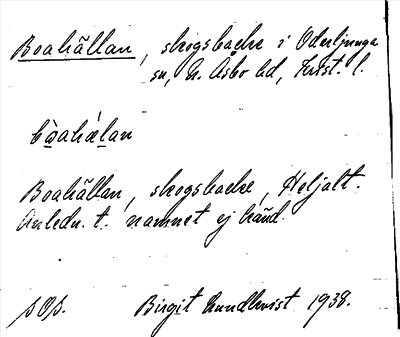 Boahällan, skogsbacke i Oderljunga
sn, N. Åsbo hd, Krist. l.
bo̤ahä́lan
Boahällan, skogsbacke, Heljalt.
Anledn. t. namnet ej känd.
Birgit Lundkvist 1938.